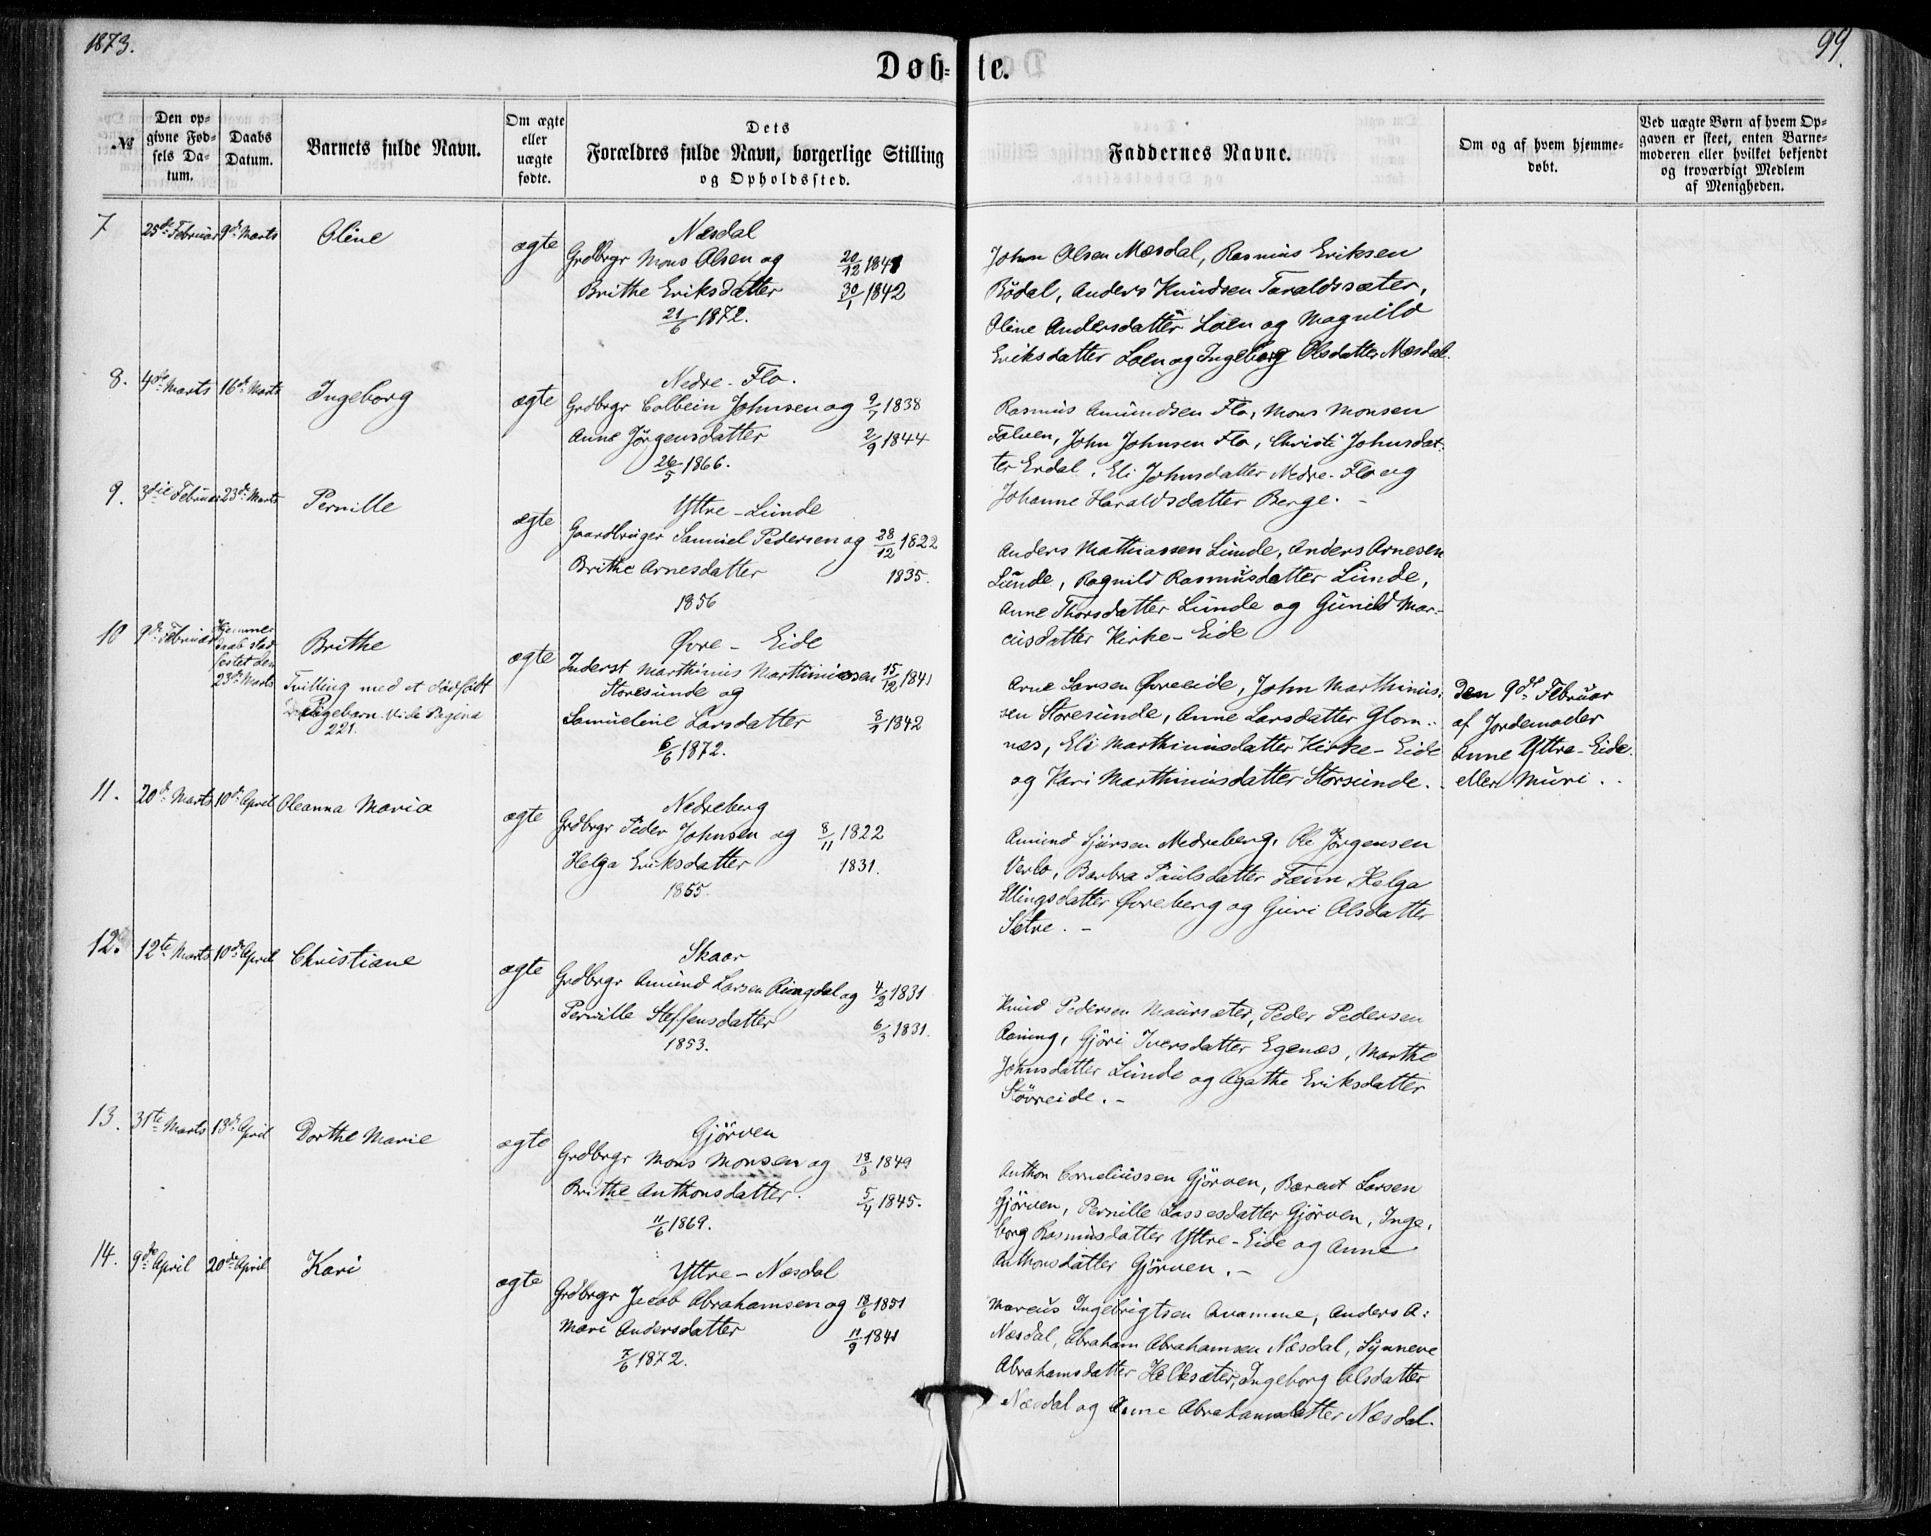 1873.
99.
Døb-te.
№
Den op-
givne Fød-
sels Da-
tum.
Daabs
Datum.
Barnets fulde Navn.
Om ægte
eller
uægte
fødte.
Dets
Forældres fulde Navn, borgerlige Stilling
og Opholdssted.
Faddernes Navne.
Om og af hvem hjemme-
døbt.
Ved uægte Børn af hvem Op-
gaven er skeet, enten Barne-
moderen eller hvilket bekjendt
og troværdigt Medlem
af Menigheden.
7
25de Februar
9de Marts
Oline
ægte
Næsdal
Grdbrgr Mons Olsen og 20/12 1841
Brithe Eriksdatter 30/1 1842
21/6 1872.
John Olsen Næsdal, Rasmus Eriksen
Bödal, Anders Knudsen Taraldsæter,
Oline Andersdatter Loen og Magnild
Eriksdatter Loen og Ingeborg Olsdatter Næsdal.
8.
4de Marts
16de Marts
Ingeborg
ægte
Nedre-Flo.
Grdbrgr Colbein Johnsen og 9/7 1838
Anne Jørgensdatter 2/9 1844
26/5 1866.
Rasmus Amundsen Flo, Mons Monsen
Folven, John Johnsen Flo, Christi Johnsdat-
ter Erdal, Eli Johnsdatter Nedre-Flo og
Johanne Haraldsdatter Berge. -
9.
3die Februar
23de Marts
Pernille
ægte
Yttre-Lunde
Gaardbruger Samuel Pedersen og 28/12 1822
Brithe Arnesdatter 1835.
1856
Anders Mathiassen Lunde, Anders Arnesen
Lunde, Ragnild Rasmusdatter Lunde,
Anne Thorsdatter Lunde og Gunild Mar-
cusdatter Kirke-Eide
10
9de Februar
Hjemme-
daab stad-
festet den
23de Marts
Brithe
Tvilling med et dödfödt
Pigebarn. Vide Pagina
221.
ægte
Øvre-Eide
Inderst Marthinus Marthinussen 15/12 1841
Storesunde og
Samueline Larsdatter 8/7 1842
6/6 1872.
Arne Larsen Øvreeide, John Marthinus-
sen Storesunde, Anne Larsdatter Glom-
næs, Eli Marthinusdatter Kirke-Eide
og Kari Marthinusdatter Storsunde.
Den 9de Februar
af Jordemoder
Anne Yttre-Eide
eller Muri.
11.
20de Marts
10de April
Oleanna Maria
ægte
Nedreberg
Grdbrgr Peder Johnsen og 8/11 1822
Helga Eriksdatter 1831.
1855.
Amund Sjursen Nedreberg, Ole Jørgensen
Verlo, Barbra Paulsdatter Tæun, Helga
Ellingsdatter Øvreberg og Guri Olsdatter
Sætre. -
12.
12te Marts
10de April
Christiane
ægte
Skaar
Grdbrgr Amund Larsen Ringdal og 4/2 1831
Pernille Steffensdatter 6/3 1831.
1853.
Knud Pedersen Maursæter, Peder Pedersen
Raning, Gjöri Iversdatter Egenæs, Marthe
Johnsdatter Lunde og Agathe Eriksdatter
Stövreide. -
13.
31te Marts
13de April
Dorthe Marie
ægte
Gjörven
Grdbrgr Mons Monsen og 18/3 1849
Brithe Anthonsdatter. 5/4 1845.
11/6 1869.
Anthon Corneliussen Gjörven, Bærent Larsen
Gjörven, Pernille Lassesdatter Gjörven, Inge-
borg Rasmusdatter Yttre-Eide og Anne
Anthonsdatter Gjörven. -
14.
9de April
20de April
Kari
ægte
Yttre-Næsdal
Grdbrgr Jacob Abrahamsen og 18/6 1851
Mari Andersdatter 11/9 1841
7/6 1872.
Marcus Ingebrigtsen Qvamme, Anders A:
Næsdal, Abraham Abrahamsen Næsdal, Synneve
Abrahamsdatter Hellesæter, Ingeborg Olsdatter
Næsdal og Anne Abrahamsdatter Næsdal.